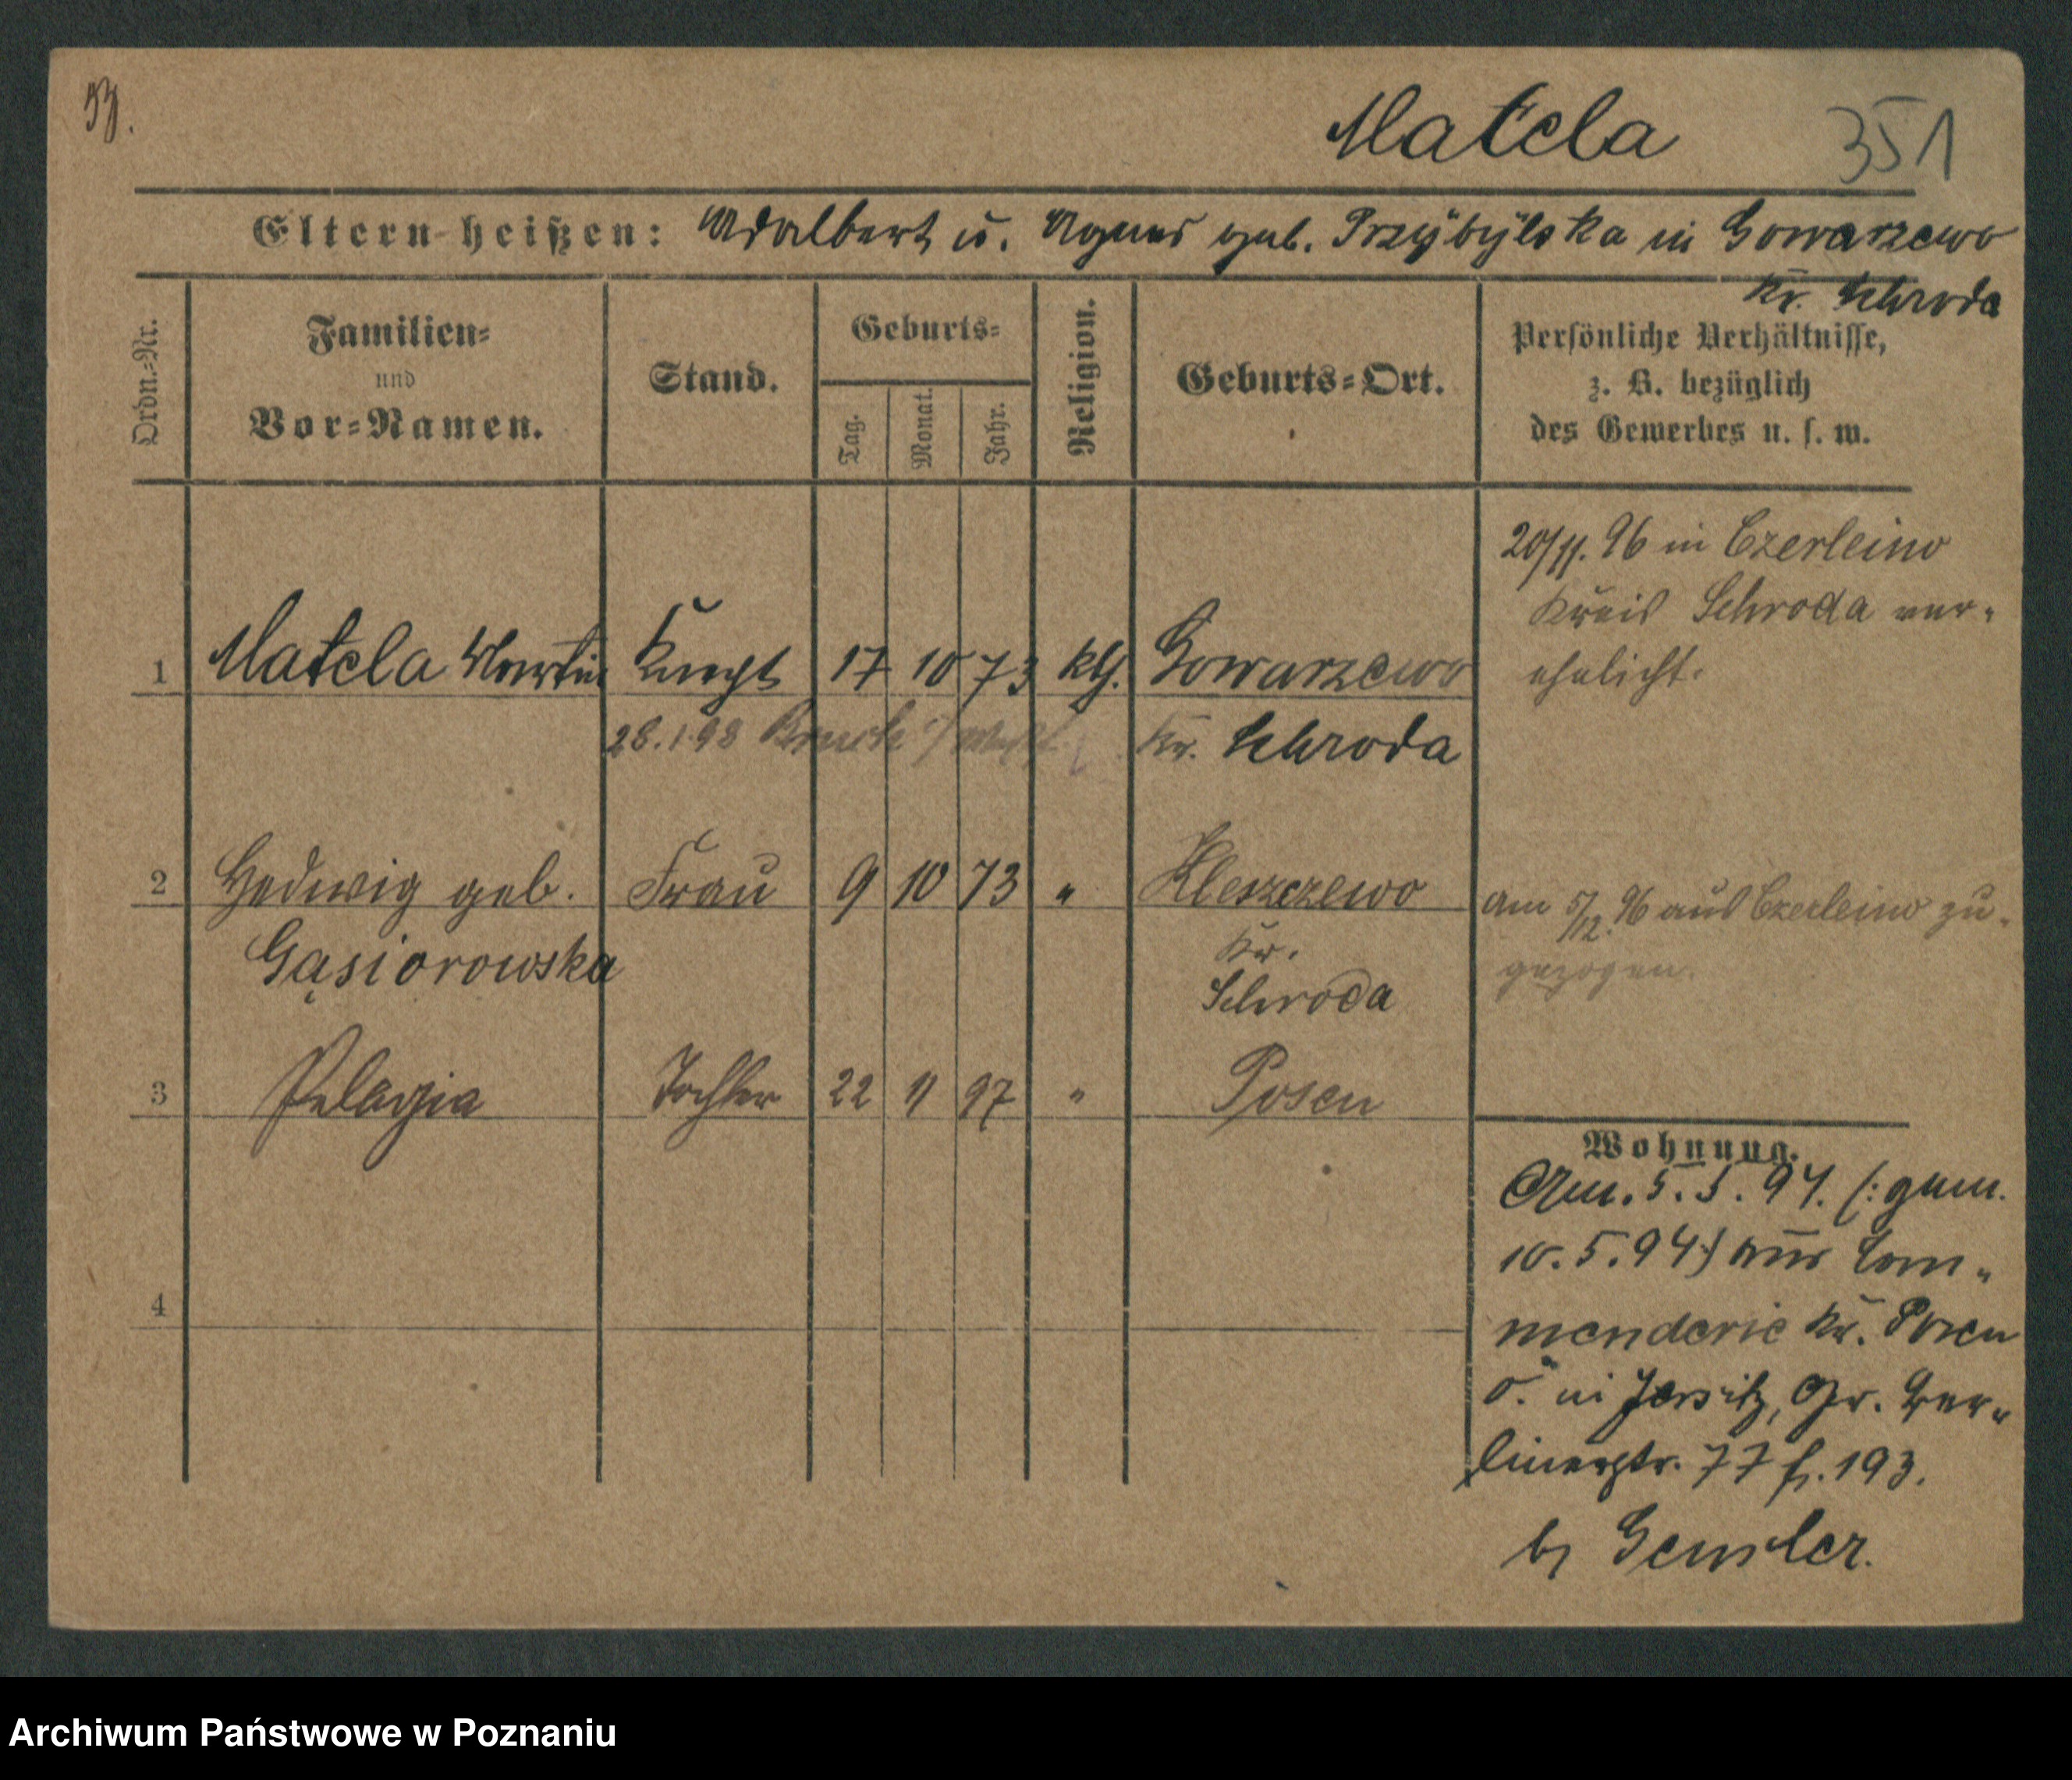 Matela 351
Eltern heißen: Adalbert u. Agnes geb. Przybylska in Gowarzewo
Kr. Schroda
Ordn.-Nr.
Familien-
und
Vor-Namen.
Stand.
Geburts-
Tag.
Monat.
Jahr.
Religion.
Geburts-Ort.
Persönliche Verhältnisse,
z. B. bezüglich
des Gewerbes u. s. w.
20/11. 96 in Czerleino
Kreis Schroda ver-
ehelicht.
1 Matela Martin Knecht 17 10 73 kth. Gowarzewo
28.1.98 Kr. Schroda
2 Hedwig geb. Frau 9 10 73 " Kleszczewo
am 5/12. 96 aus Czerleino zu-
gezogen.
Gąsiorowska Kr.
Schroda
3 Pelagia Tochter 22 11 97 " Posen
4
Wohnung.
Am. 5.5.94. (: gem.
10.5.94) aus Com-
menderie Kr. Posen
in Jersitz, Gr. Ber-
linerstr. 77 f. 193.
b/ Gensler.
Archiwum Państwowe w Poznaniu